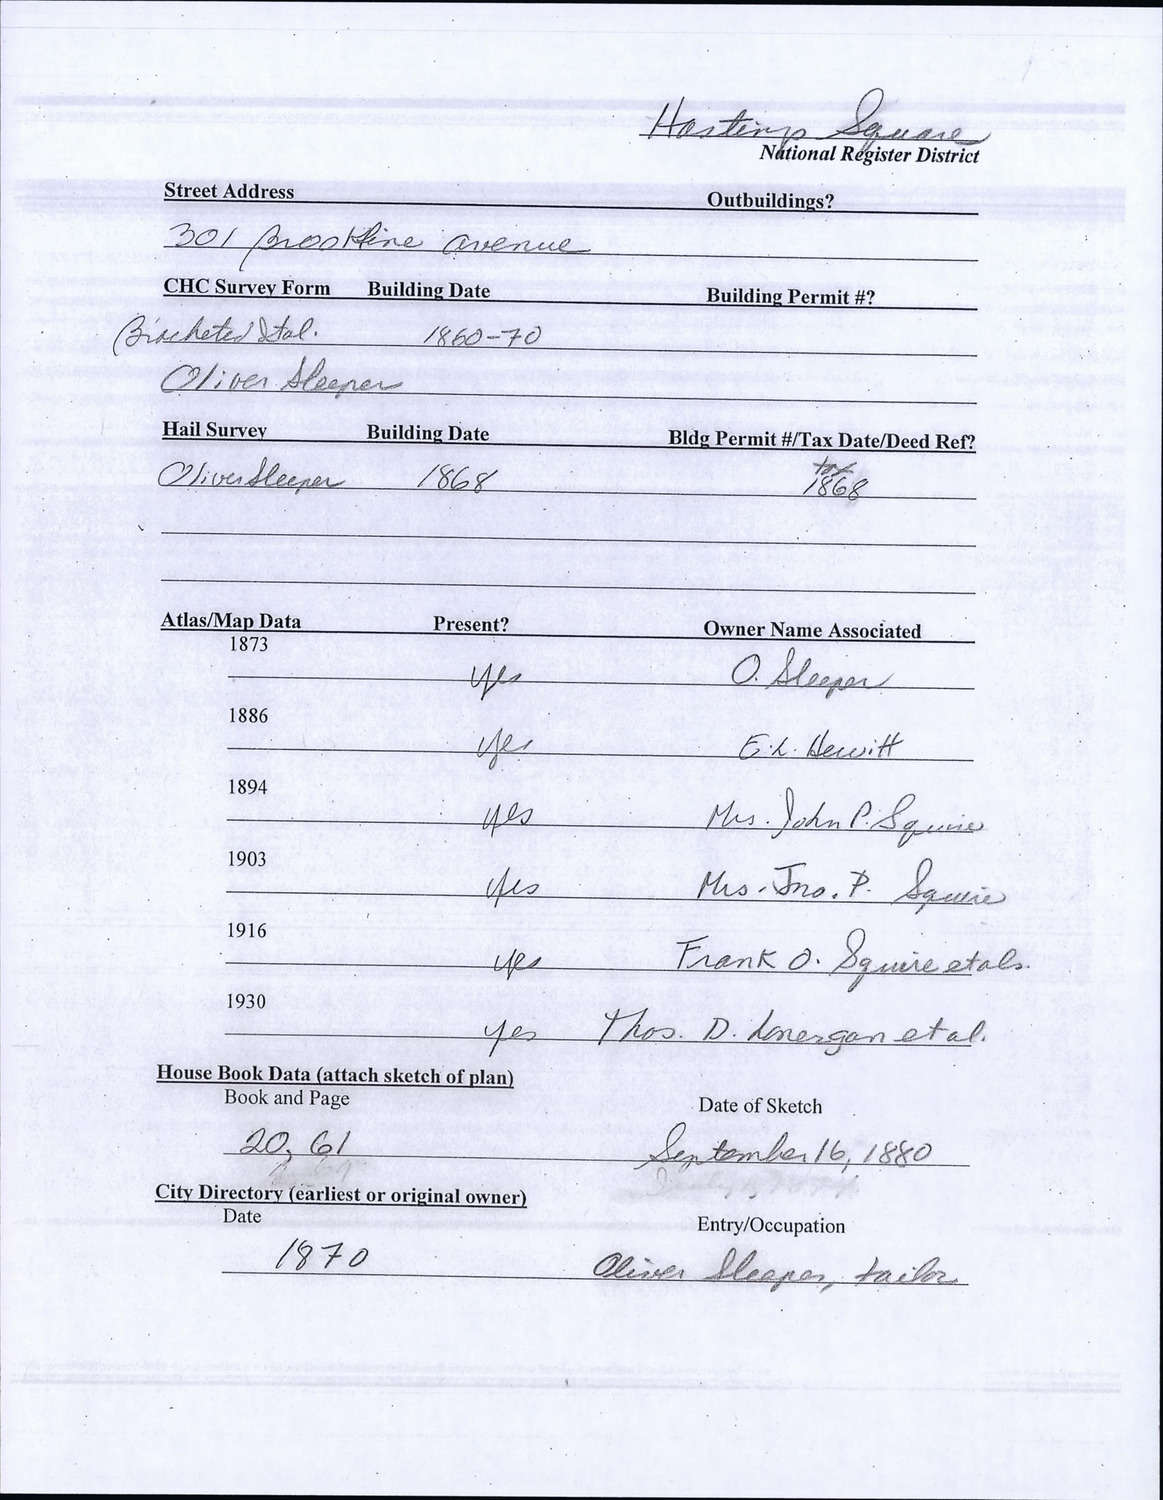 Hastings Square
National Register District
Street Address Outbuildings?
301 Brookline avenue
CHC Survey Form Building Date Building Permit #?
Bracketed Ital. 1860-70
Oliver Sleeper
Hail Survey Building Date Bldg Permit #/Tax Date/Deed Ref?
tax
Oliver Sleeper 1868 1868
Atlas/Map Data Present? Owner Name Associated
1873
yes O. Sleeper
1886
yes E.L. Hewitt
1894
yes Mrs. John P. Squire
1903
yes Mrs. Jno. P. Squire
1916
yes Frank O. Squire et als.
1930
yes Thos. D. Lonergan et al.
House Book Data (attach sketch of plan)
Book and Page Date of Sketch
20, 61 September 16, 1880
City Directory (earliest or original owner)
Date Entry/Occupation
1870 Oliver Sleeper, tailor